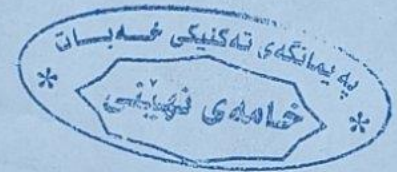 پەیمانگەی تەکنیکی خەبات
خامەی نهێنی